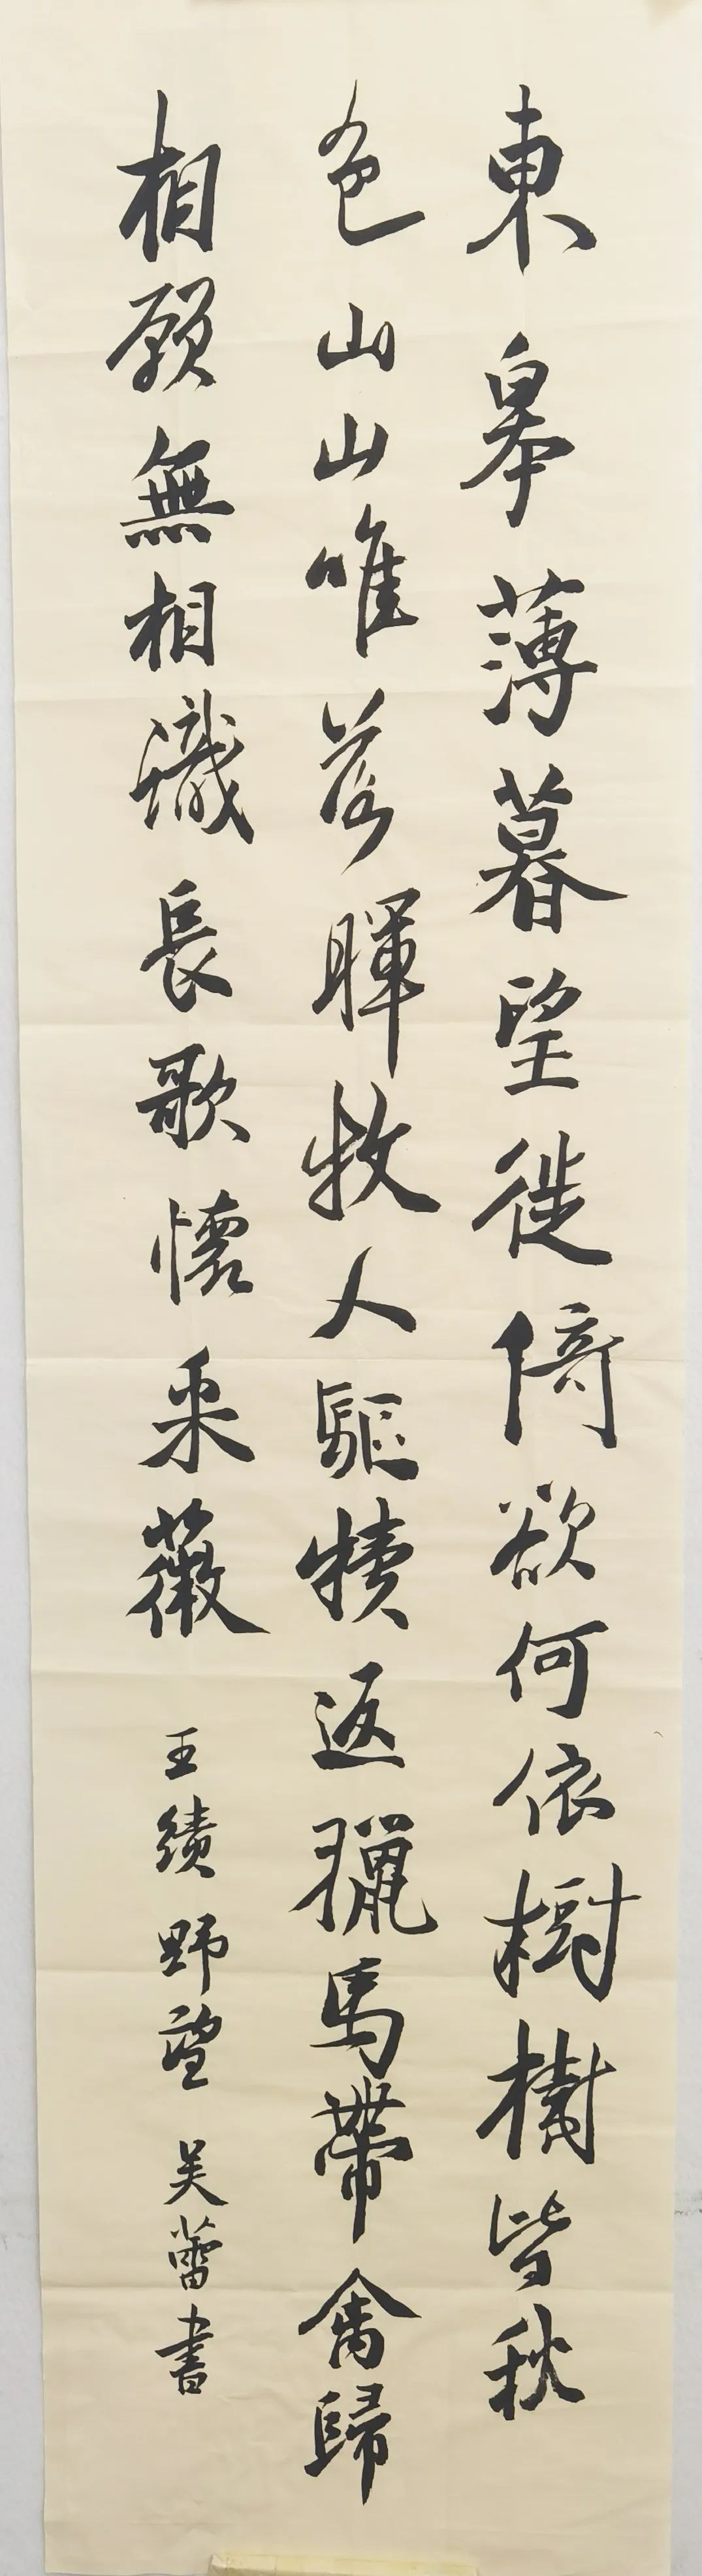 東皋薄暮望徙倚欲何依樹樹皆秋
色山山唯落暉牧人驅犢返獵馬帶禽歸
相顧無相識長歌懷采薇 王績野望 吴蕾書